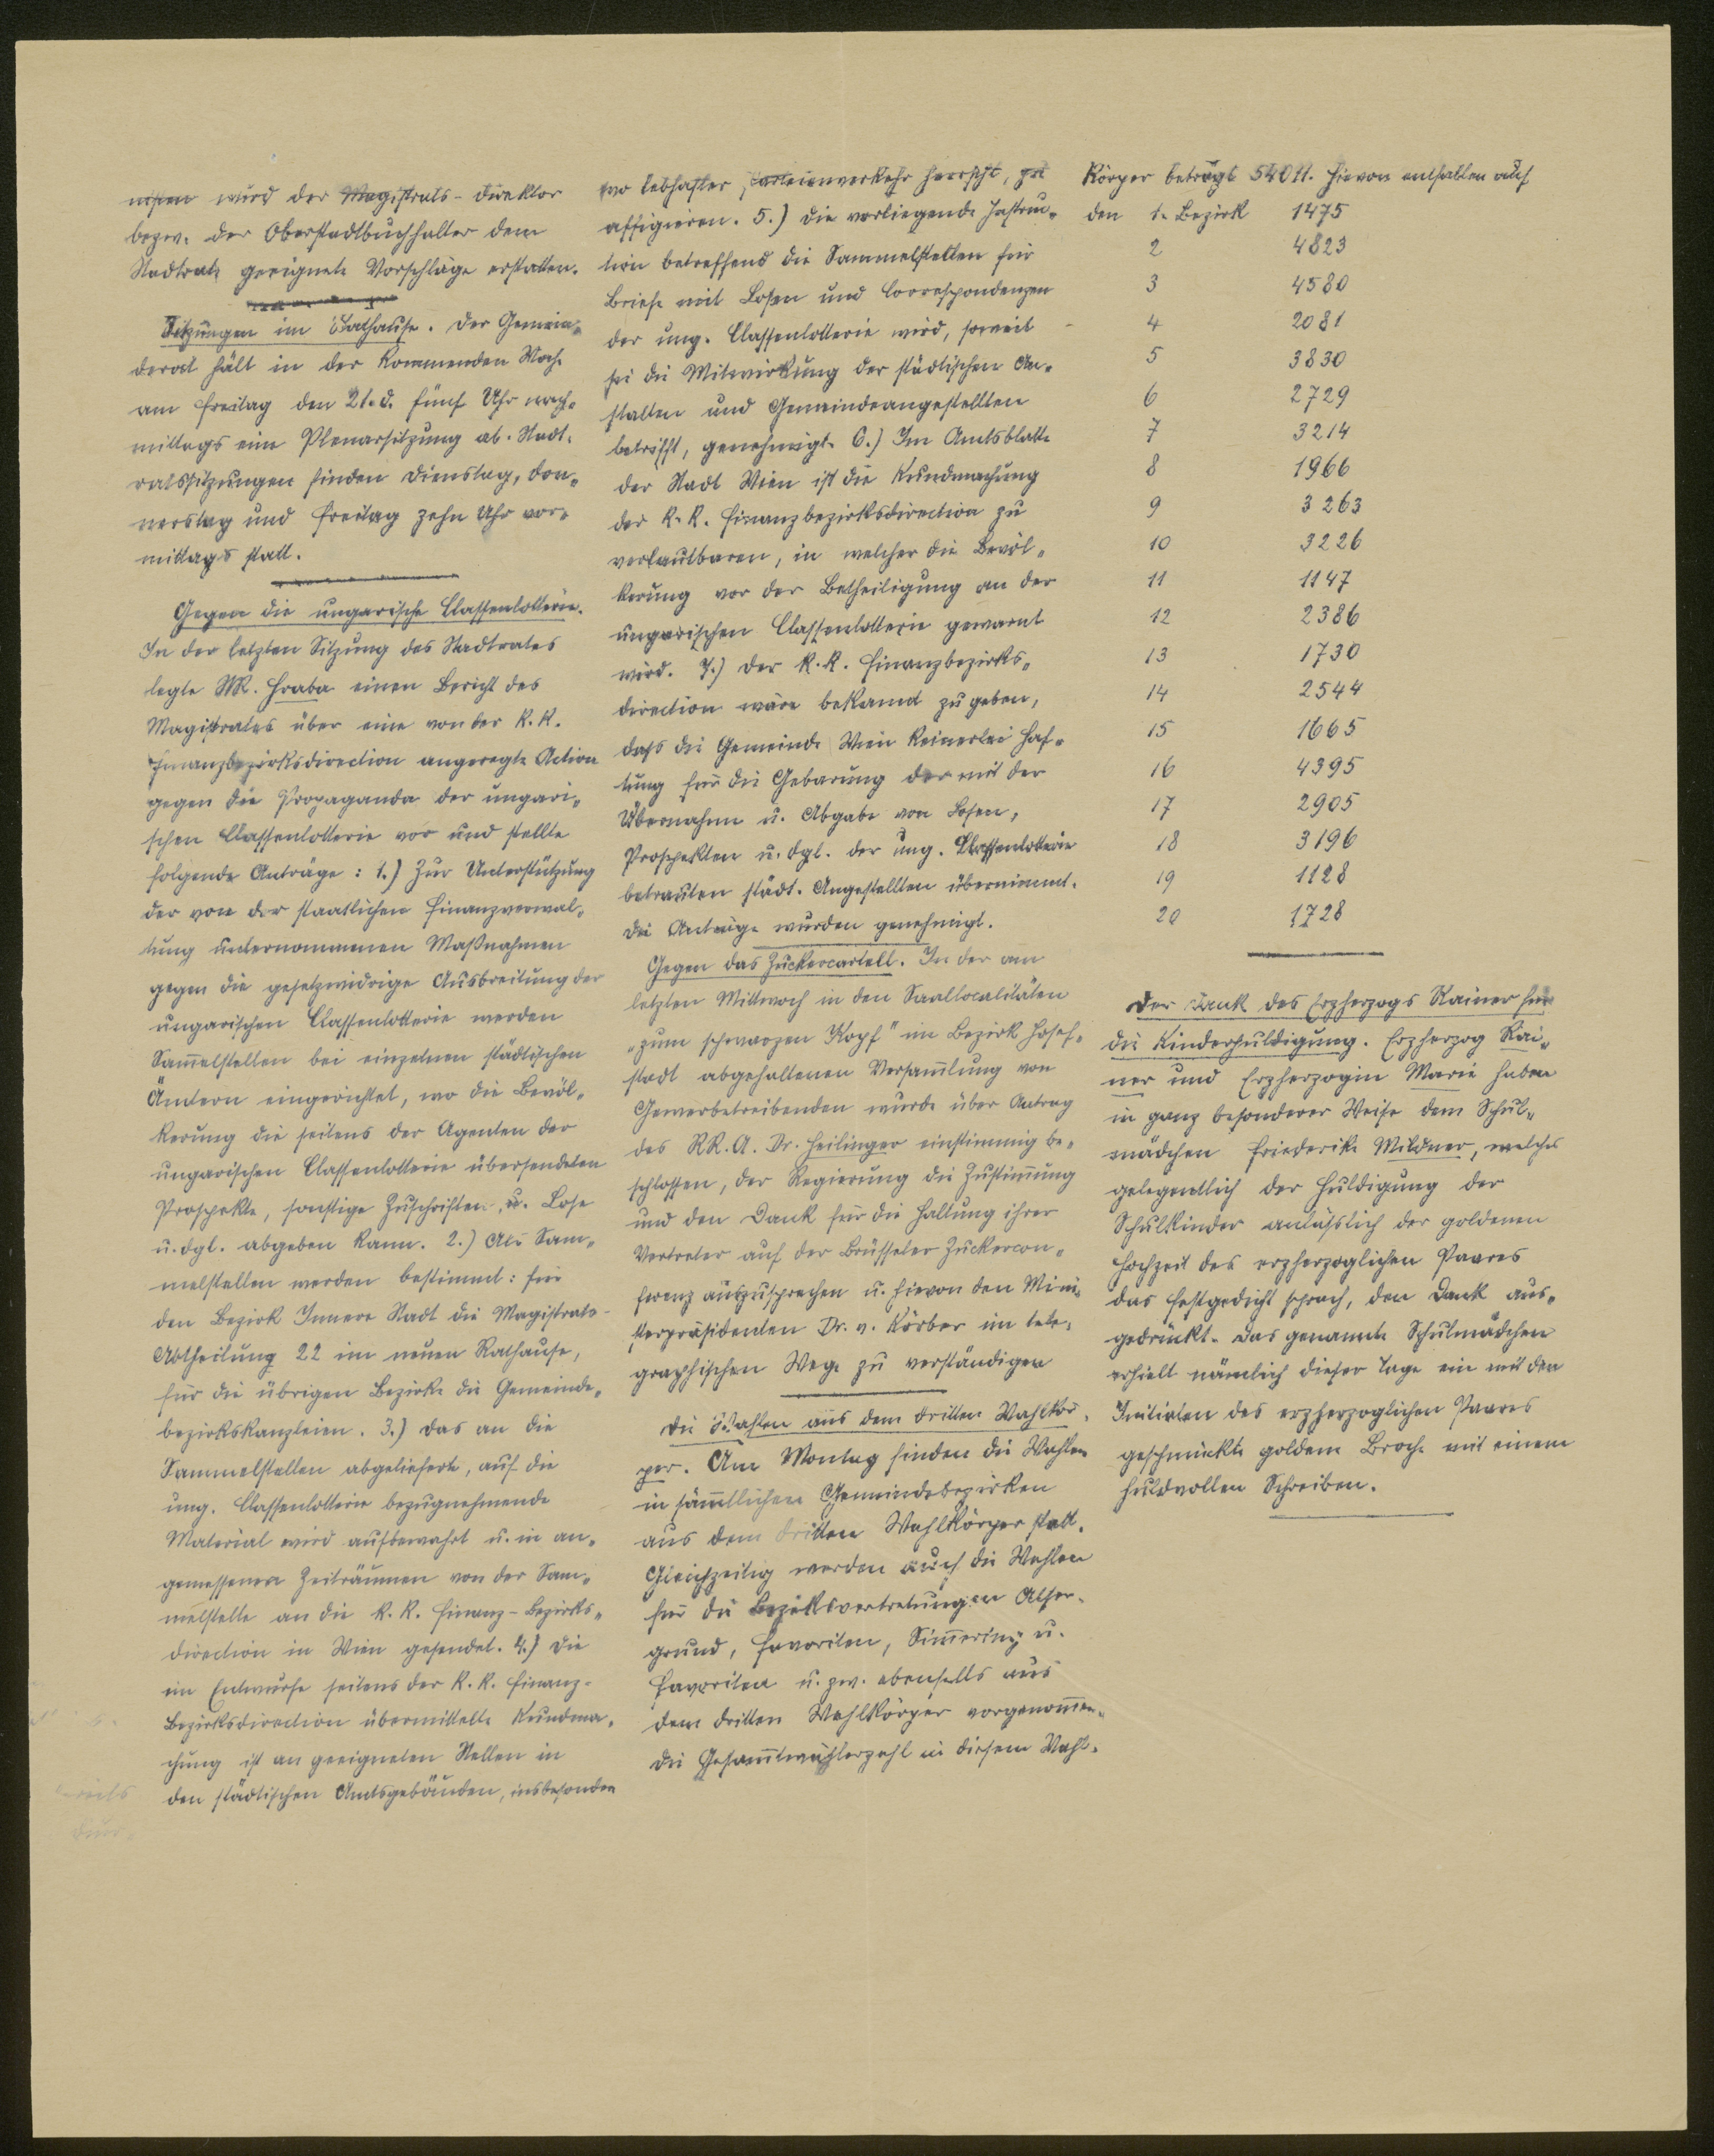 nissen wird der Magistrats-Direktor
bezw. der Oberstadtbuchhalter dem
Stadtrate geeignete Vorschläge erstatten.
Sitzungen im Rathause. Der Gemein-
derat hält in der kommenden Woche
am Freitag den 21. d. fünf Uhr nach-
mittags eine Plenarsitzung ab. Stadt-
ratssitzungen finden Dienstag, Don-
nerstag und Freitag zehn Uhr vor-
mittags statt.
Gegen die ungarische Classenlotterie.
In der letzten Sitzung des Stadtrates
legte StR. Hraba einen Bericht des
Magistrates über eine von der k.k.
Finanzbezirksdirection angeregte Action
gegen die Propaganda der ungari-
schen Classenlotterie vor und stellte
folgende Anträge: 1.) Zur Unterstützung
der von der staatlichen Finanzverwal-
tung unternommenen Maßnahmen
gegen die gesetzwidrige Ausbreitung der
ungarischen Classenlotterie werden
Sam̅elstellen bei einzelnen städtischen
Ämtern eingerichtet, wo die Bevöl-
kerung die seitens der Agenten der
ungarischen Classenlotterie übersendeten
Prospekte, sonstige Zuschriften, u. Lose
u. dgl. abgeben kann. 2.) Als Sam-
melstellen werden bestimmt: für
den Bezirk Innere Stadt die Magistrats-
Abtheilung 22 im neuen Rathause,
für die übrigen Bezirke die Gemeinde-
bezirkskanzleien. 3.) Das an die
Sammelstellen abgelieferte, auf die
ung. Classenlotterie bezugnehmende
Material wird aufbewahrt u. in an-
gemessenen Zeiträumen von der Sam-
melstelle an die k.k. Finanz-Bezirks-
direction in Wien gesendet. 4.) Die
im Entwurfe seitens der k.k. Finanz-
Bezirksdirection übermittelte Kundma-
chung ist an geeigneten Stellen in
den städtischen Amtsgebäuden, insbesondere
wo lebhafter Parteienverkehr herrscht, zu
affigieren. 5.) Die vorliegende Instruc-
tion betreffend die Sammelstellen für
Briefe mit Losen und Correspondenzen
der ung. Classenlotterie wird, soweit
sie die Mitwirkung der städtischen An-
stalten und Gemeindeangestellten
betrifft, genehmigt. 6.) Im Amtsblatte
der Stadt Wien ist die Kundmachung
der k.k. Finanzbezirksdirection zu
verlautbaren, in welcher die Bevöl-
kerung vor der Betheiligung an der
ungarischen Classenlotterie gewarnt
wird. 7.) Der k.k. Finanzbezirks-
direction wäre bekannt zu geben,
dass die Gemeinde Wien keinerlei Haf-
tung für die Gebarung der mit der
Übernahme u. Abgabe von Losen,
Prospekten u. dgl. der ung. Classenlotterie
betrauten städt. Angestellten übernimmt.
Die Anträge wurden genehmigt.
Gegen das Zuckercartell. In der am
letzten Mittwoch in den Saallocalitäten
„zum schwarzen Kopf" im Bezirk Josef-
stadt abgehaltenen Versam̅lung von
Gewerbetreibenden wurde über Antrag
des RR.A. Dr. Heilinger einstimmig be-
schlossen, der Regierung die Zustim̅ung
und den Dank für die Haltung ihrer
Vertreter auf der Brüsseler Zuckercon-
ferenz auszusprechen u. hievon den Mini-
sterpräsidenten Dr. v. Körber im tele-
graphischen Wege zu verständigen
Die Wahlen aus dem dritten Wahlkör-
per. Am Montag finden die Wahlen
in säm̅tlichen Gemeindebezirken
aus dem dritten Wahlkörper statt.
Gleichzeitig werden auch die Wahlen
für die Bezirksvertretungen Alser-
grund, Favoriten, Sim̅ering u.
Favoriten u. zw. ebenfalls aus
dem dritten Wahlkörper vorgenom̅en.
Die Gesam̅twählerzahl in diesem Wahl-
körper beträgt 54011. Hievon entfallen auf
den 1. Bezirk 1475
2 4823
3 4580
4 2081
5 3830
6 2729
7 3214
8 1966
9 3263
10 3226
11 1147
12 2386
13 1730
14 2544
15 1665
16 4395
17 2905
18 3196
19 1128
20 1728
Der Dank des Erzherzogs Rainer für
die Kinderhuldigung. Erzherzog Rai-
ner und Erzherzogin Marie haben
in ganz besonderer Weise dem Schul-
mädchen Friederike Mildner, welches
gelegentlich der Huldigung der
Schulkinder anlässlich der goldenen
Hochzeit des erzherzoglichen Paares
das Festgedicht sprach, den Dank aus-
gedrückt. Das genannte Schulmädchen
erhielt nämlich dieser Tage ein mit den
Initialen des erzherzoglichen Paares
geschmückte goldene Broche mit einem
huldvollen Schreiben.